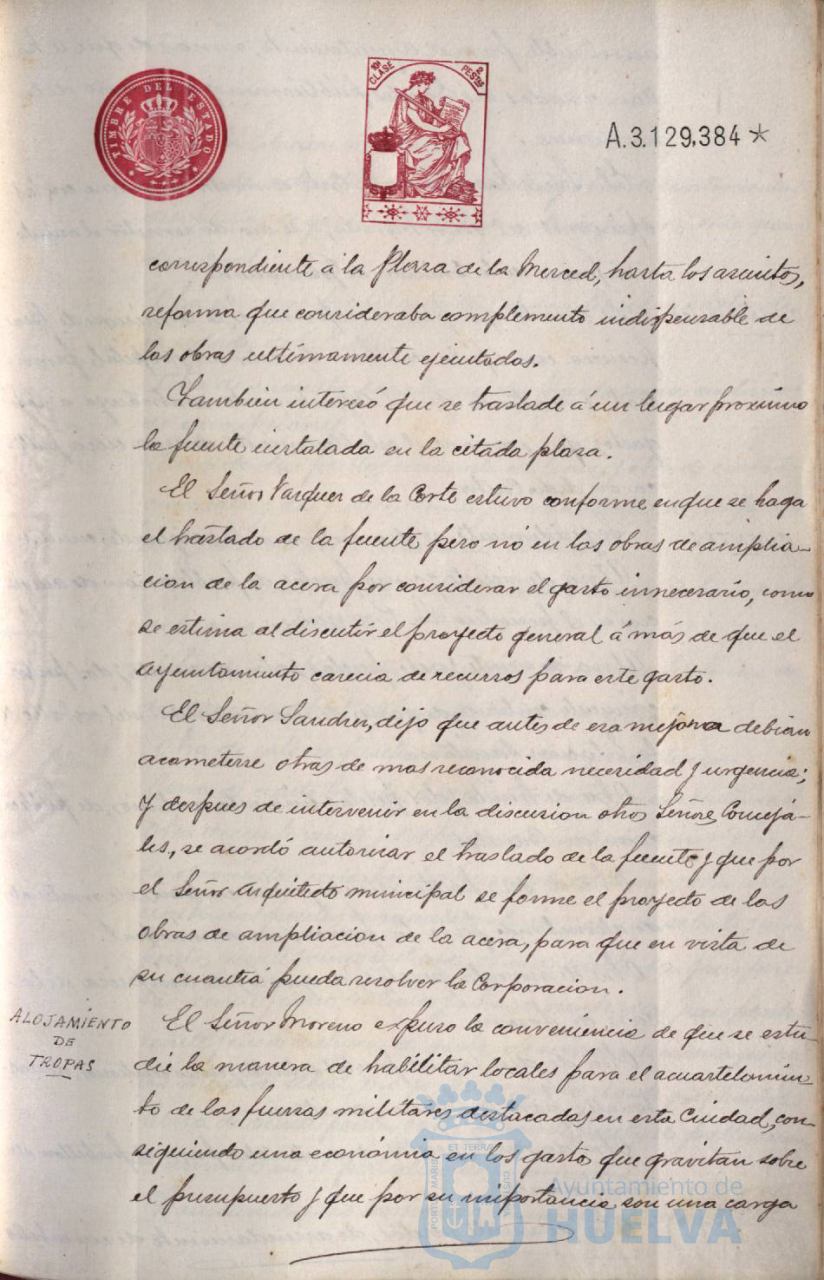 TIMBRE DEL ESTADO
10ª CLASE
2 PESTAS
A.3.129,384 *
correspondiente á la Plaza de la Merced, hasta los asientos,
reforma que consideraba complemento indispensable de
las obras ultimamente ejecutadas.
Tambien interesó que se traslade á un lugar proximo
la fuente instalada en la citada plaza.
El Señor Vazquez de la Corte estuvo conforme en que se haga
el traslado de la fuente pero nó en las obras de amplia-
cion de la acera por considerar el gasto innecesario, como
se estima al discutir el proyecto general á más de que el
Ayuntamiento carecia de recursos para este gasto.
El Señor Sanchez, dijo que antes de esa mejora debian
acometerse otras de mas reconocida necesidad y urgencia;
y despues de intervenir en la discusion otros Señores Conceja-
les, se acordó autorizar el traslado de la fuente y que por
el Señor Arquitecto municipal se forme el proyecto de las
obras de ampliacion de la acera, para que en vista de
su cuantia pueda resolver la Corporacion.
ALOJAMIENTO
DE
TROPAS
El Señor Moreno expuso la conveniencia de que se estu-
die la manera de habilitar locales para el acuartelamien-
to de las fuerzas militares destacadas en esta Ciudad, con-
siguiendo una económia en los gastos que gravitan sobre
el presupuesto y que por su importancia son una carga
PORTUS MARIS ET TERRAE CUSTODIA
Ayuntamiento de
HUELVA